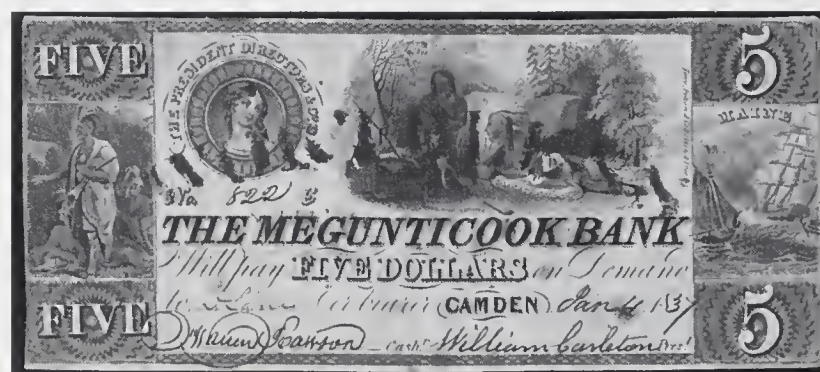 FIVE
THE PRESIDENT DIRECTORS & CO.
5
MAINE
No. 822
THE MEGUNTICOOK BANK
Will pay FIVE DOLLARS on Demand
to bearer CAMDEN Jan 4 1837
FIVE
5
Rawson Cash.r William Carleton Pres.t